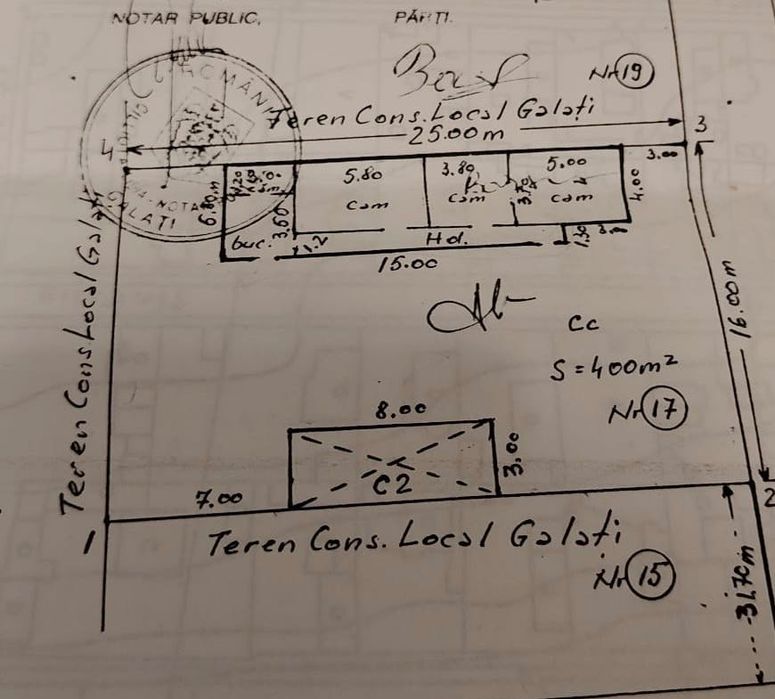 NOTAR PUBLIC,
PĂRȚI.
ROMÂNIA
GALAȚI
Nr 19
Teren Cons. Local Galați
25.00 m
4
3
3.00
5.80
cam
3.80
cam
3.70
5.00
cam
4.00
6.80 m
3.60
buc.
1.2
Hol.
1.30
15.00
Teren Cons Local Galați
16.00 m
Cc
S = 400 m²
Nr 17
8.00
3.00
C2
7.00
1
2
Teren Cons. Local Galați
Nr 15
31.70 m